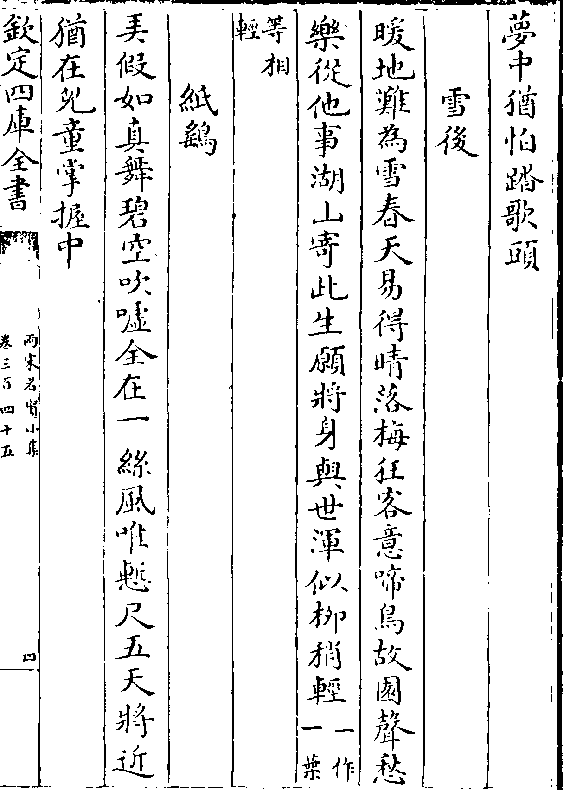 夢中猶怕踏歌頭
雪後
暖地難為雪春天易得晴落梅狂客意啼鳥故園聲愁
樂從他事湖山寄此生願將身與世渾似柳稍輕一作一葉
等相輕
紙鷂
弄假如真舞碧空吹噓全在一絲風唯慙尺五天將近
猶在兒童掌握中
欽定四庫全書
兩宋名賢小集
卷三百四十五
四